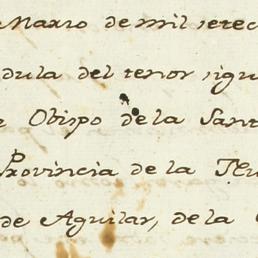 Marzo de mil setec
dula del tenor sigu
Obispo de la Sant
Provincia de la
de Aguilar, de la